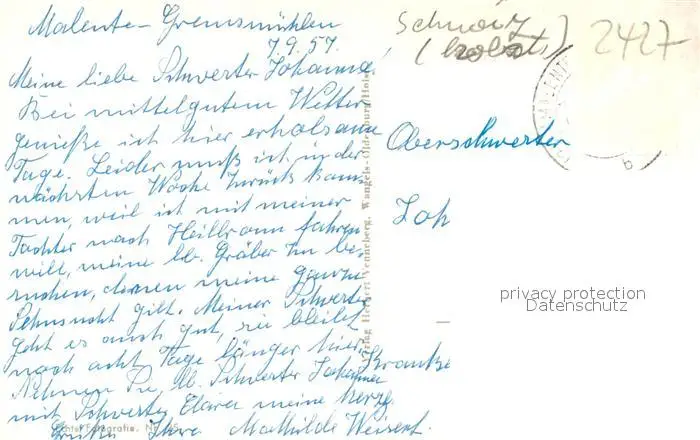 Malente-Gremsmühlen
7.9.57.
Meine liebe Schwester Johanna,
Bei mittelgutem Wetter
genieße ich hier erholsame
Tage. Leider muß ich in der
nächsten Woche zurück kom-
men, weil ich mit meiner
Tochter nach Heilbronn fahren
will, meine lb. Gräber zu be-
suchen, denen meine ganze
Sehnsucht gilt. Meiner Schwester
geht es auch gut, sie bleibt
noch acht Tage länger hier.
Nehmen Sie, lb. Schwester Johanna
mit Schwester Clara meine herzl.
Grüße Ihre Mathilde Weisert.
Verlag Herbert Venneberg, Wangels-Oldenburg/Holst.
2427
Oberschwester
Joh
Kranke
privacy protection
Datenschutz